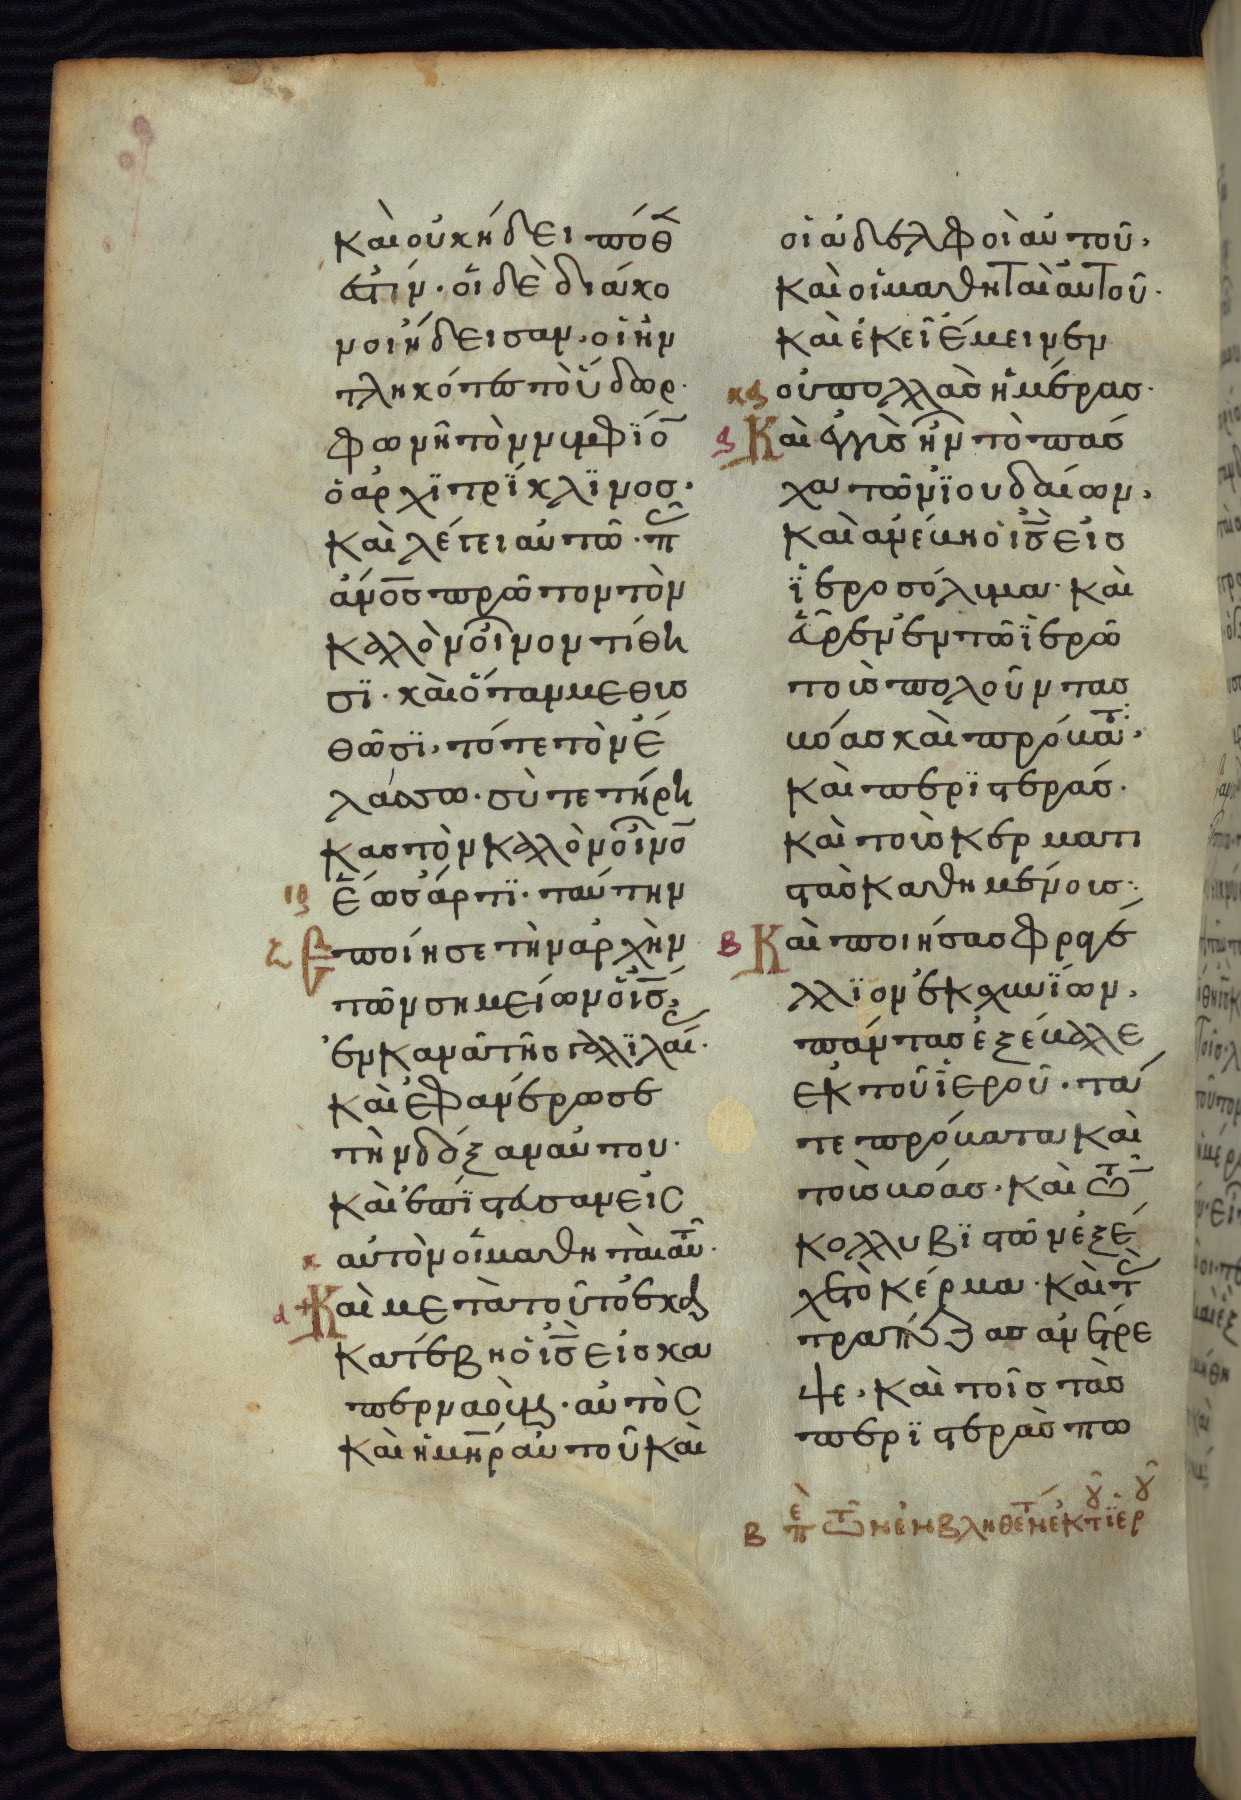 καὶ οὐκ ᾔδει πόθ
ἐστίν· οἱ δὲ διάκο
νοι ᾔδεισαν, οἱ ἠν
τληκότες τὸ ὕδωρ·
φωνεῖ τὸν νυμφίο
ὁ αρχϊτρίκλϊνοσ·
καὶ λέγει αὐτῶ· π
ἄνοσ πρῶτον τὸν
καλὸν οἶνον τίθη
σϊ· καὶ ὅταν μεθυσ
θῶσϊ, τότε τὸν ἐ
λάσσω· σὺ τετήρη
κασ τὸν καλὸν οἶνο
ιθ ἕωσ ἄρτϊ· ταύτην
ζ ἐποίησε τὴν ἀρχὴν
τῶν σημείων ὁ ισ,
ἐν κανᾶ τῆσ γαλϊλαί·
καὶ ἐφανέρωσε
τὴν δόξαν αὐτου·
καὶ ἐπίστευσαν εἰσ
κ αὐτὸν οἱ μαθηταὶ αὐτ·
α + Καὶ μετὰ τοῦτο
κατέβη ὁ ισ εἰσ κα
περναούμ· αὐτὸσ
καὶ ἡ μηρ αὐτοῦ καὶ
οἱ ἀδελφοὶ αὐτοῦ,
καὶ οἱ μαθηταὶ αὐτοῦ·
καὶ ἐκεῖ ἔμεινεν
οὐ πολλὰσ ἡμέρασ·
Καὶ ἐγγὺσ ἦν τὸ πάσ
χα τῶν ϊουδαίων,
καὶ ανέβη ὁ ισ εἰσ
ϊεροσόλυμα· καὶ
εὗρεν ἐν τῶ ϊερῶ
τοὺσ πωλοῦντασ
βόασ καὶ πρόβατ·
καὶ περϊστεράσ·
καὶ τοὺσ κερματι
στὰσ καθημένουσ·
β Καὶ ποιήσασ φραγέ
λλϊον ἐκ σχοινϊίων,
πάντασ ἐξέβαλλε
ἐκ τοῦ ἱεροῦ· τά
τε πρόβατα καὶ
τοὺσ βόασ· καὶ τῶν
κολλυβϊστῶν ἐξέ
χεε τὸ κέρμα· καὶ τ
τραπέζασ ἀνέστρε
ψε, καὶ τοῖσ τὰσ
περϊστερὰσ πω
β περὶ τῶν ἐκβληθέντ ἐκ τ ϊερ